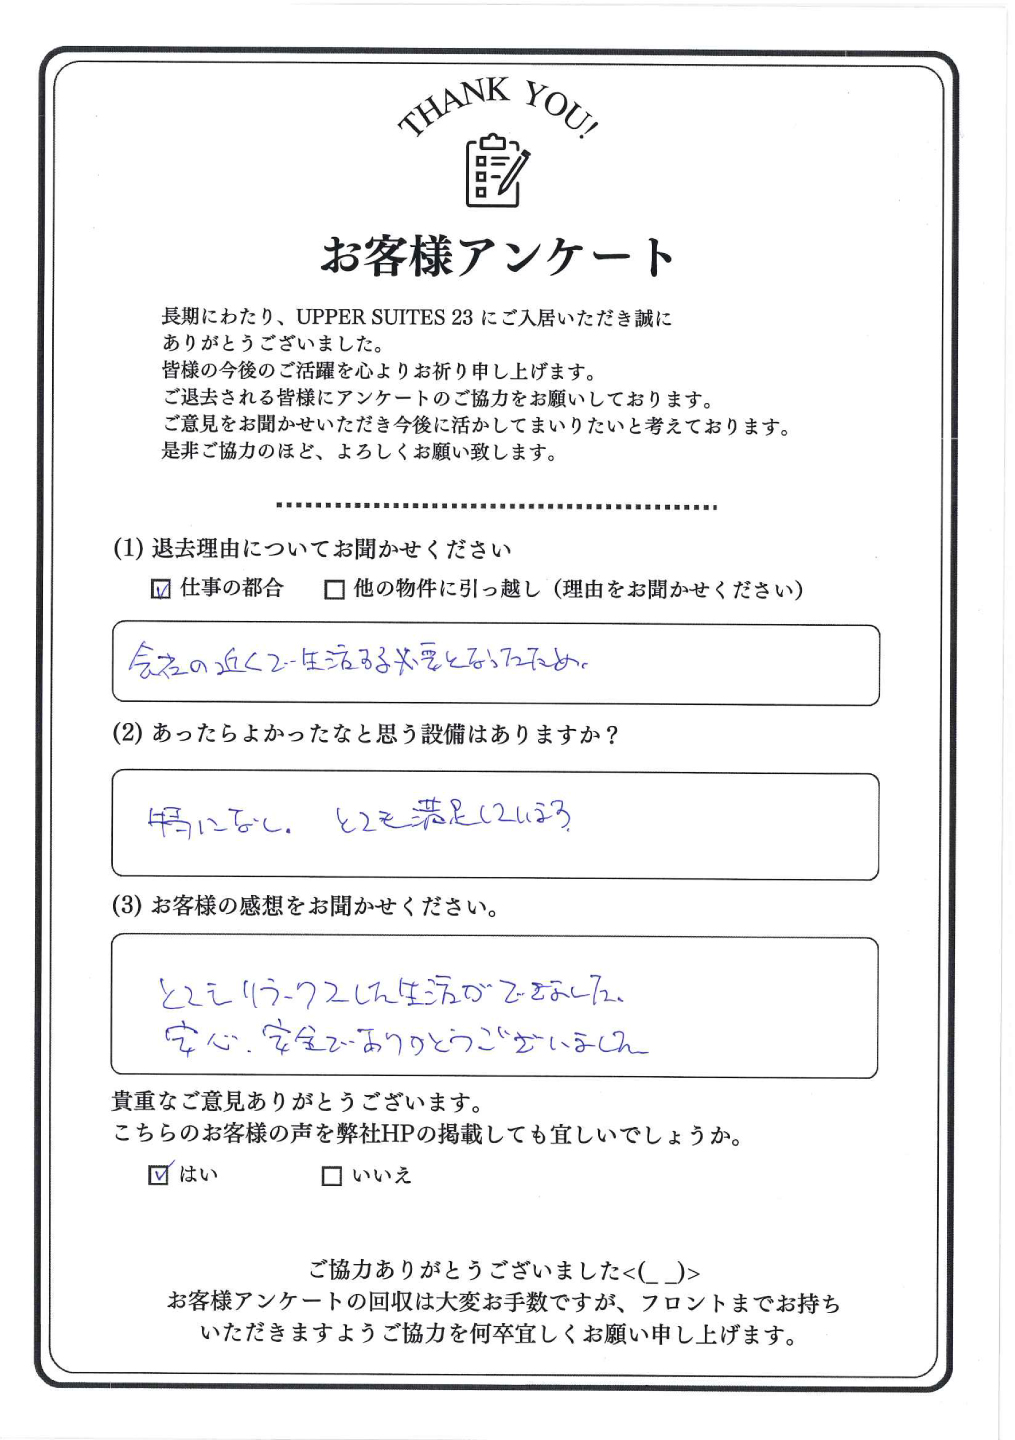 THANK YOU!
お客様アンケート
長期にわたり、UPPER SUITES 23 にご入居いただき誠に
ありがとうございました。
皆様の今後のご活躍を心よりお祈り申し上げます。
ご退去される皆様にアンケートのご協力をお願いしております。
ご意見をお聞かせいただき今後に活かしてまいりたいと考えております。
是非ご協力のほど、よろしくお願い致します。
(1) 退去理由についてお聞かせください
☑ 仕事の都合 ☐ 他の物件に引っ越し（理由をお聞かせください）
会社の近くで生活する必要となったため。
(2) あったらよかったなと思う設備はありますか？
特になし。 とても満足しています
(3) お客様の感想をお聞かせください。
とてもリラックスした生活ができました。
安心、安全でありがとうございました
貴重なご意見ありがとうございます。
こちらのお客様の声を弊社HPの掲載しても宜しいでしょうか。
☑ はい ☐ いいえ
ご協力ありがとうございました<(_ _)>
お客様アンケートの回収は大変お手数ですが、フロントまでお持ち
いただきますようご協力を何卒宜しくお願い申し上げます。